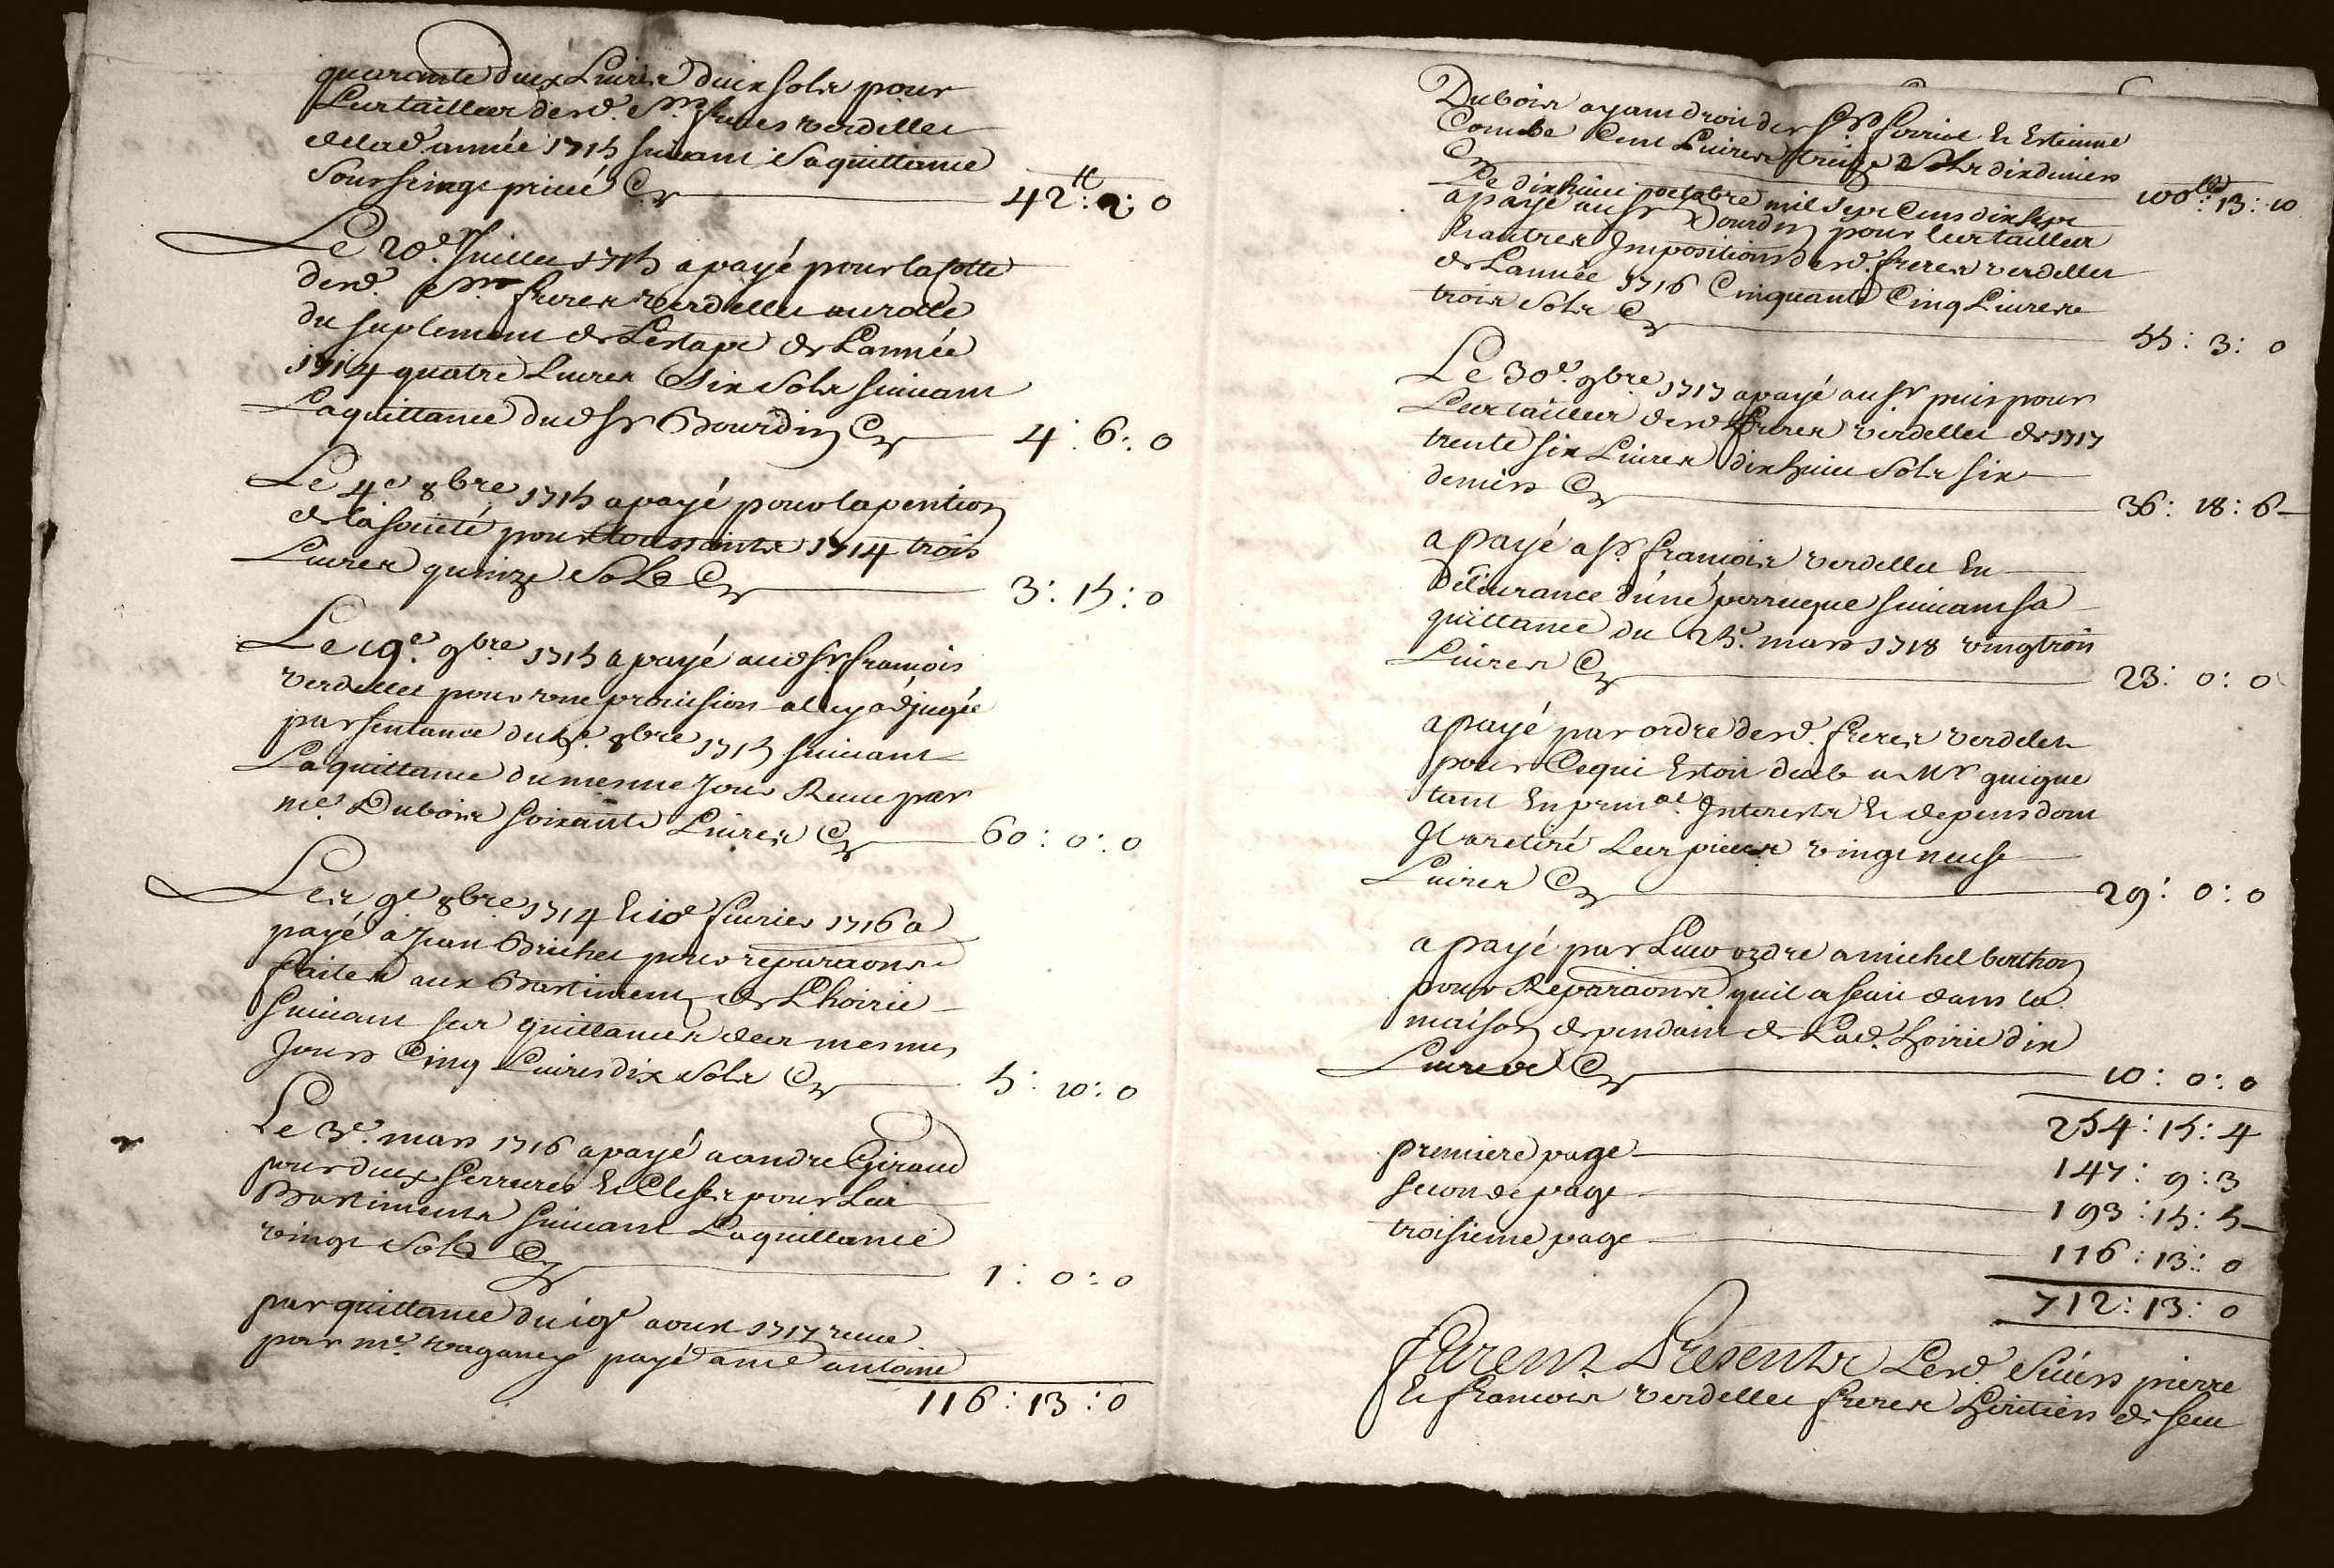 quarante deux Livres deux sols pour
Leurtailles desd. Srs freres verdellet
delad. année 1715 suivant saquittance
sous seing privé Cy 42tt: 2: 0
Le 20e. Juillet 1715 apayé pour la Cotte
desd. Srs freres verdellet au rolle
du suplement de Lestape de Lannée
1714 quatre Livres Six Sols suivant
Laquittance dud Sr Bourdin Cy 4: 6: 0
Le 4e 8bre 1715 apayé pour lapention
de lasocieté pour toussaints 1714 trois
Livres quinze Sols Cy 3: 15: 0
Le 19e. 9bre 1715 a payé aud Sr. francois
verdellet pour une provision aluy adjugée
par sentance du 5e. 8bre 1715 suivant
Laquittance du mesme Jour Receue par
me. Dubois soixante Livres Cy 60: 0: 0
Les 9e 8bre 1714 Et 10e fevrier 1716 a
payé a Jean Brichet pour reparaons
faites aux Bastiments de Lhoirie
suivant ses quittances des mesmes
Jours Cinq Livres dix Sols Cy 5: 10: 0
Le 3e. mars 1716 apayé a andre Giraud
pour deux serrures Et Clefs pour Leur
Bastiments suivant Laquittance
vingt Sols Cy 1: 0: 0
par quittance du 19e aoust 1717 receue
par me. vaganey payé a me antoine
116: 13: 0
Dubois ayant droit des Srs Et Estienne
Combe Cent Livres treize Sols dix deniers
Cy 100tt: 13: 10
Le dixhuict octobre mil Sept Cens dix sept
apayé au Sr Bourdin pour leurtailles
Et autres Impositions desd. freres verdellet
de Lannée 1716 Cinquante Cinq Livres
trois Sols Cy 55: 3: 0
Le 30e. 9bre 1717 apayé au Sr puis pour
Leurtailles desd freres verdellet de 1717
trente six Livres dixhuict Sols six
deniers Cy 36: 18: 6
apayé a Sr. francois verdellet En
Délivrance d'une perruque suivant sa
quittance du 25e. mars 1718 vingt trois
Livres Cy 23: 0: 0
apayé par ordre desd. freres verdelet
pour Cequi Estoit deub a Mr guigue
tant En prinal. Interests Et depens dont
Il a retiré Les pieces vingt neufs
Livres Cy 29: 0: 0
apayé par Leur ordre a michel berthon
pour Reparaons quil a fait dans la
maison dependant de Lad. hoirie dix
Livres Cy 10: 0: 0
254: 15: 4
premiere page 147: 9: 3
seconde page 193: 15: 5
troisieme page 116: 13: 0
712: 13: 0
furent Presents Lesd. Sieurs pierre
Et francois verdellet freres heritiers de feu